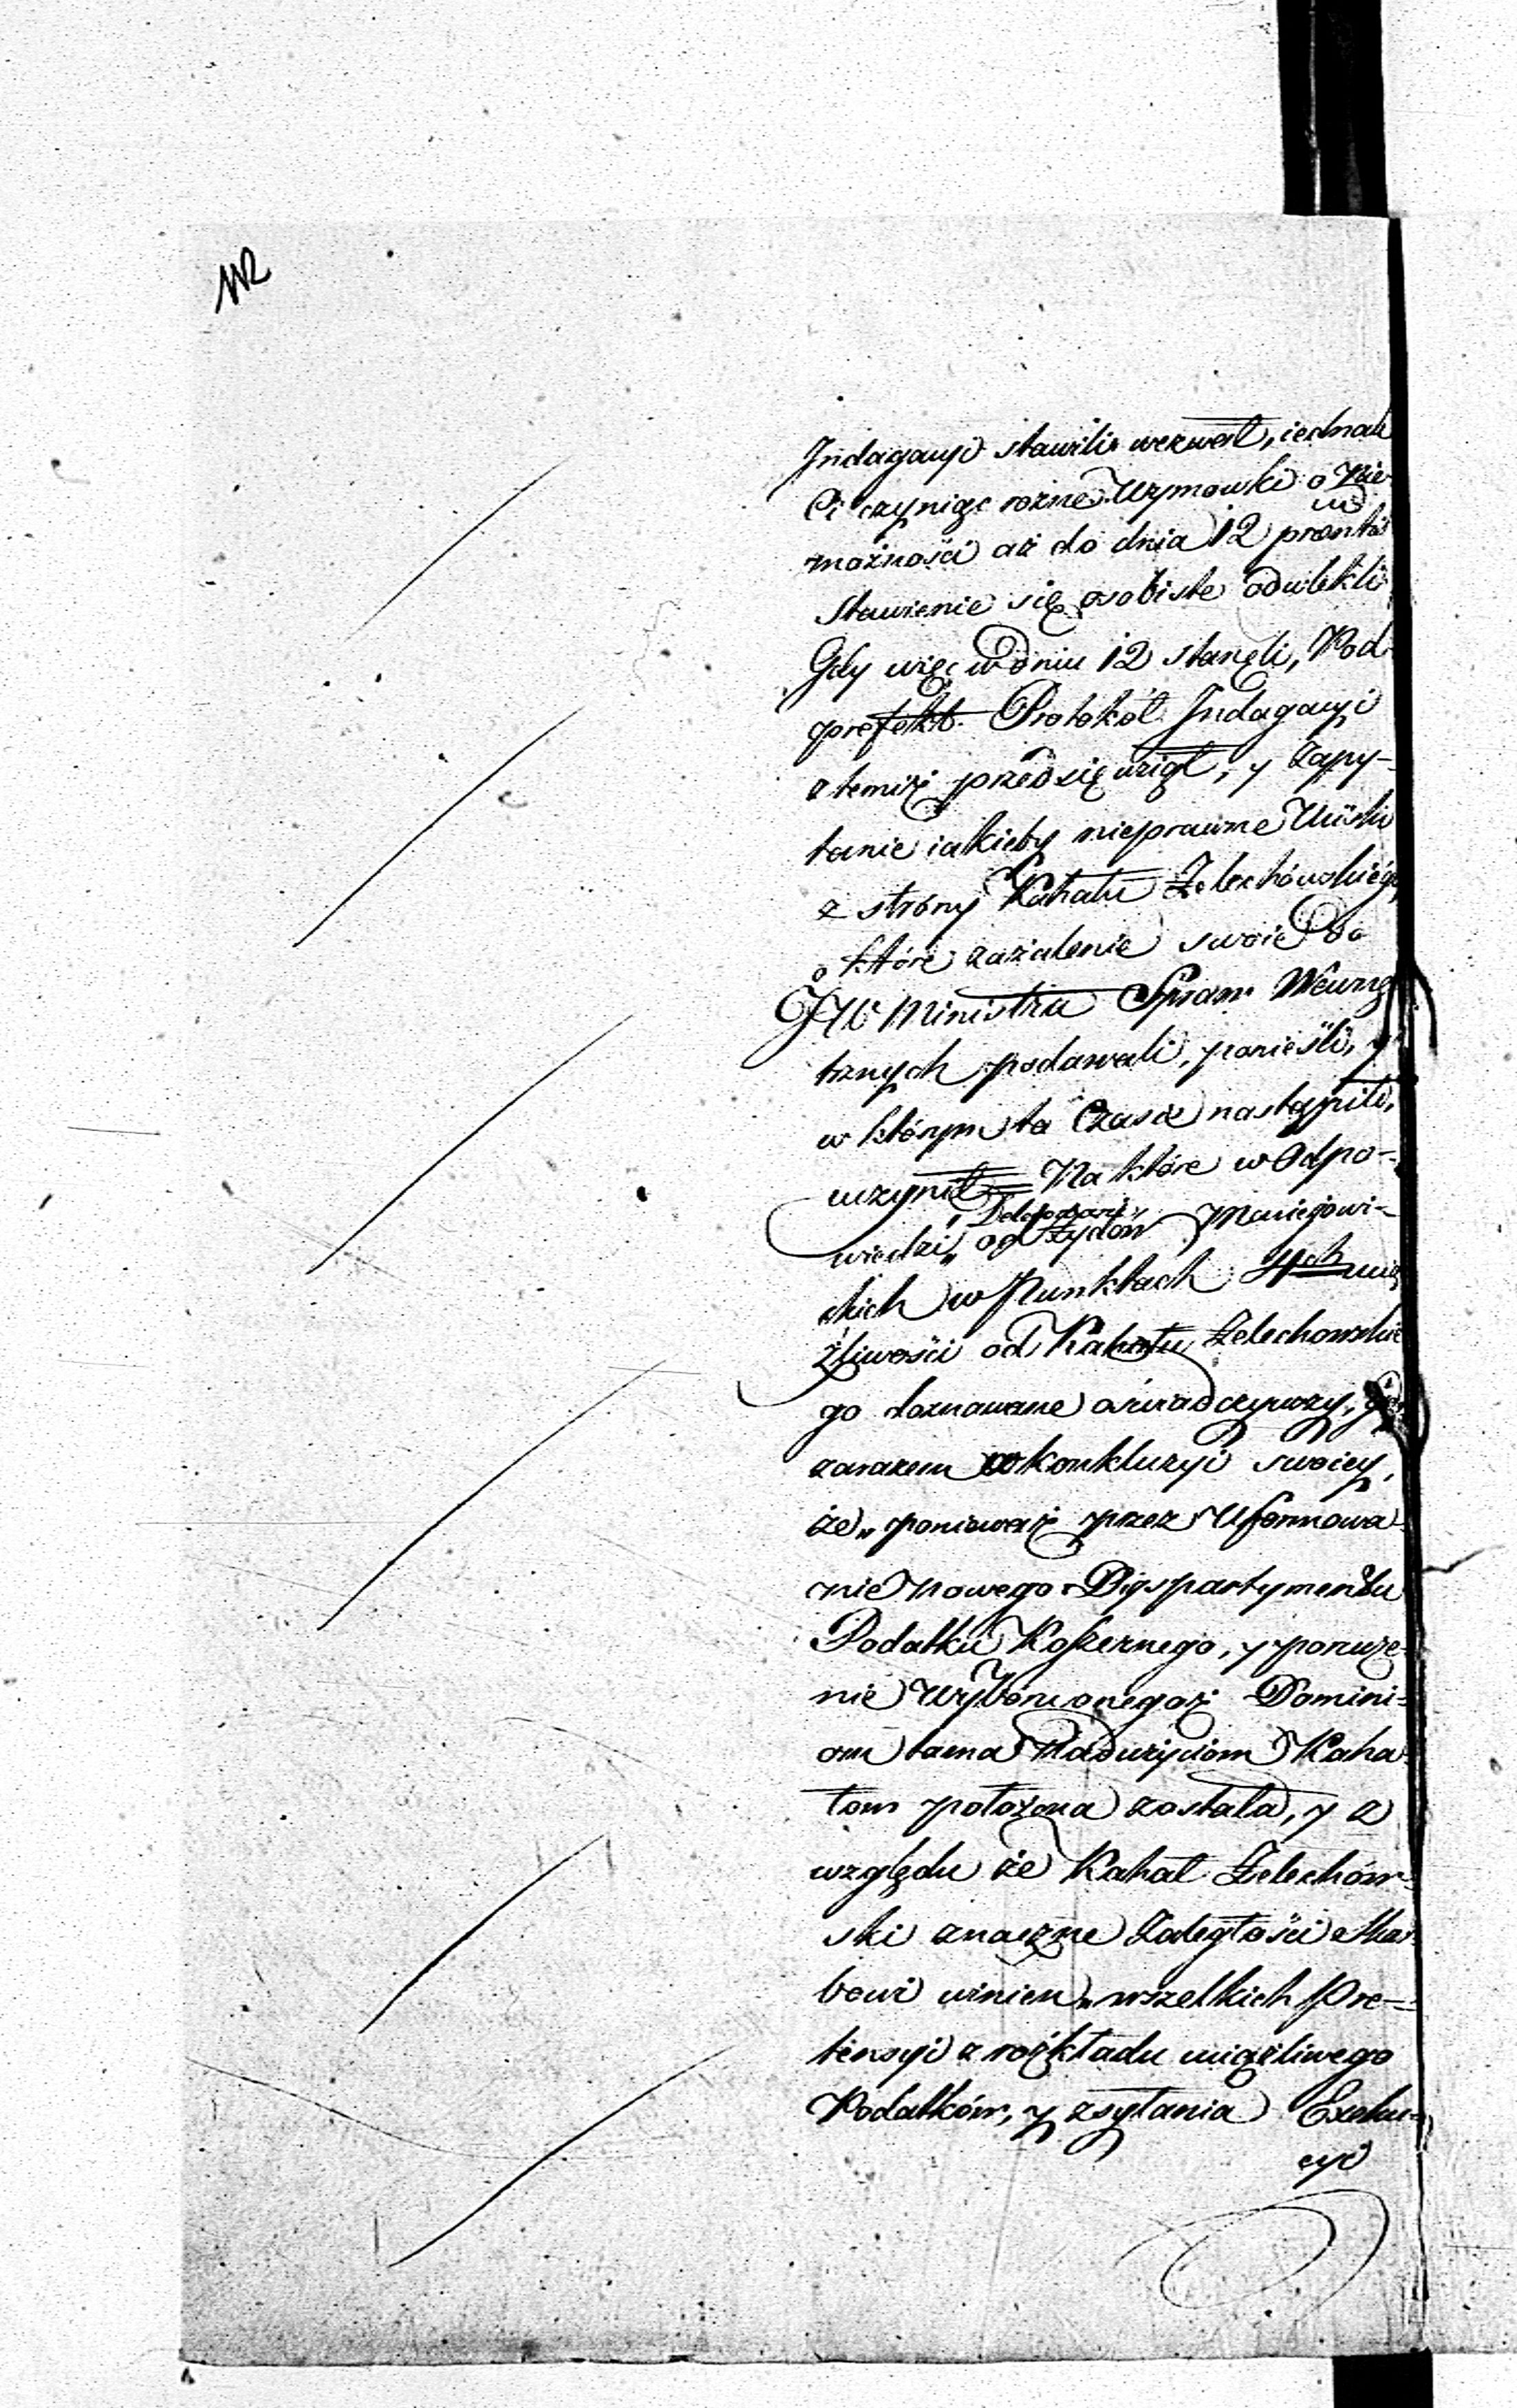 112
Indagacyi stawili wezwał, iednak
Ci czyniąc rożne Wymowki o Nie-
możności aż do dnia 12
Stawienie się osobiste odwlekli
Gdy więc w dniu 12 stanęli, Pod-
prefekt Protokół Indagacyi
z temiż przedsięwziął, y Zapy-
tanie iakieby nieprawne Uciski
z strony Kahału Żelechówskiego
o które zażalenie swoie do
JW Ministra Spraw Wewnę
trznych podawali, ponieśli, y
w którym to Czasie nastąpiło,
uczynił = Na które w Odpo-
wiedzi „ Delegowani „ od Żydów Macieiowi-
ckich w Punktach 4ch ucią
żliwości od Kahału Żelechowskie
go doznawane oświadczywszy,
zarazem w konkluzyi swoiey,
że „ ponieważ przez Uformowa-
nie nowego Dyspartymentu
Podatku Koszernego, y porucze-
nie Wybóru onegoż Domini-
om tama Nadużyciom Kaha-
łow położona została, y z
względu że Kahał Żelechów-
ski znaczne Zaległości Skar-
bowi winien „ wszelkich Pre-
tensyi z rozkładu uciążliwego
Podatków, y zsyłania Exeku-
cyi